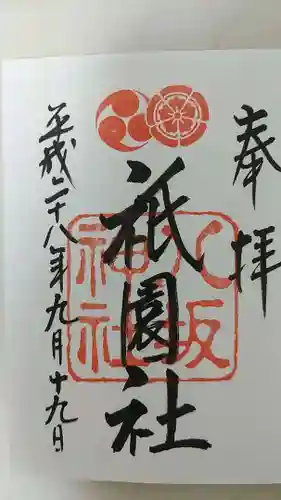 奉拝
八坂神社
祇園社
平成二十八年九月十九日